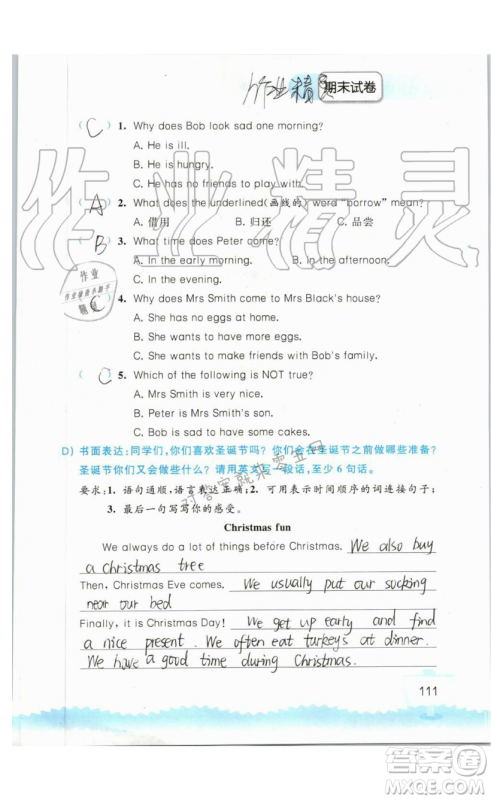 作业精灵
期末试卷
( C ) 1. Why does Bob look sad one morning?
A. He is ill.
B. He is hungry.
C. He has no friends to play with.
( A ) 2. What does the underlined(画线的) word "borrow" mean?
A. 借用 B. 归还 C. 品尝
( B ) 3. What time does Peter come?
A. In the early morning. B. In the afternoon.
C. In the evening.
( C ) 4. Why does Mrs Smith come to Mrs Black's house?
A. She has no eggs at home.
B. She wants to have more eggs.
C. She wants to make friends with Bob's family.
( C ) 5. Which of the following is NOT true?
A. Mrs Black wants to make some cakes.
B. Peter is Mrs Smith's son.
C. Bob is sad to have some cakes.
D) 书面表达:同学们,你们喜欢圣诞节吗?你们会在圣诞节之前做哪些准备?
圣诞节你们又会做些什么?请用英文写一段话,至少 6 句话。
要求:1. 语句通顺,语言表达正确;2. 可用表示时间顺序的词连接句子;
3. 最后一句写写你的感受。
Christmas fun
We always do a lot of things before Christmas. We also buy
a Christmas tree
Then, Christmas Eve comes. We usually put our socking
near our bed
Finally, it is Christmas Day! We get up early and find
a nice present. We often eat turkeys at dinner.
We have a good time during Christmas.
111
作业精灵
对答案就来零五网
答案圈
MXQE.COM